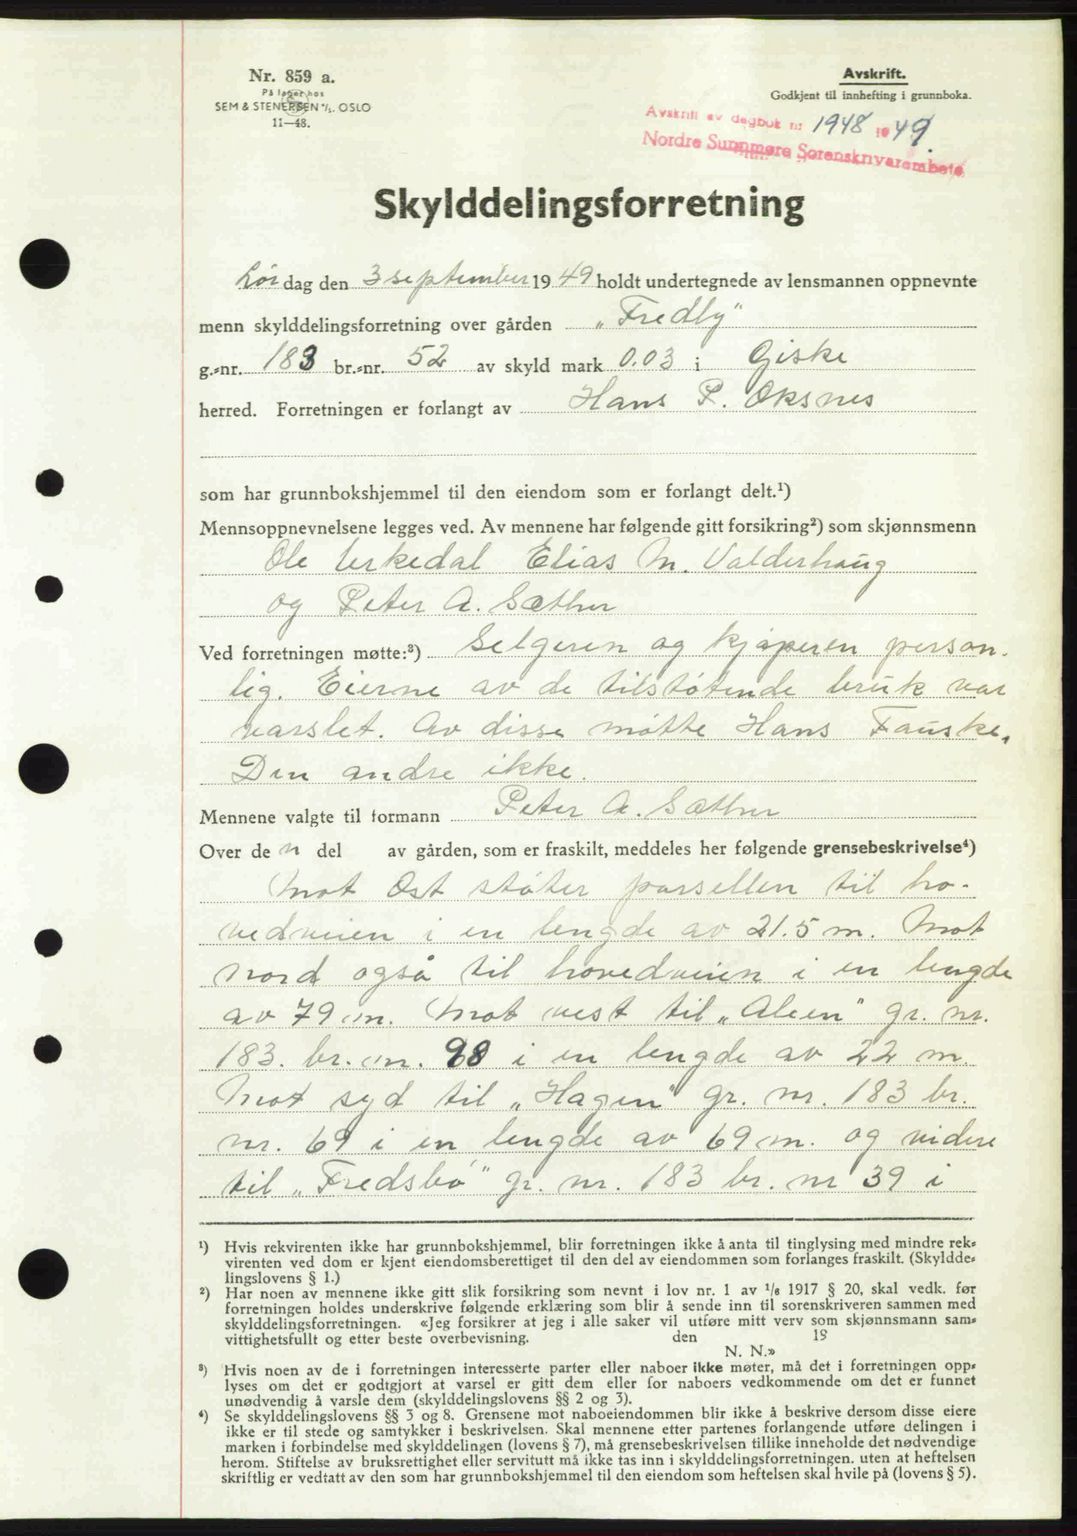 Nr. 859 a.
På lager hos
SEM & STENERSEN A/S. OSLO
11—48.
Avskrift.
Godkjent til innhefting i grunnboka.
Avskrift av dagbok nr 1948 1949.
Nordre Sunnmøre Sorenskriverembete
Skylddelingsforretning
Lørdag den 3 september 1949 holdt undertegnede av lensmannen oppnevnte
menn skylddelingsforretning over gården „Fredly"
g.-nr. 183 br.-nr. 52 av skyld mark 0.03 i Giske
herred. Forretningen er forlangt av Hans P. Øksnes
som har grunnbokshjemmel til den eiendom som er forlangt delt.¹)
Mennsoppnevnelsene legges ved. Av mennene har følgende gitt forsikring²) som skjønnsmenn
Ole Urkedal Elias M. Valderhaug
og Peter A. Sæther
Ved forretningen møtte:³) Selgeren og kjøperen person-
lig. Eierne av de tilstøtende bruk var
varslet. Av disse møtte Hans Fauske.
Den andre ikke.
Mennene valgte til formann Peter A. Sæther
Over den del av gården, som er fraskilt, meddeles her følgende grensebeskrivelse⁴)
Mot Øst støter parsellen til ho-
vedveien i en lengde av 21.5 m. Mot
nord også til hovedveien i en lengde
av 79 m. Mot vest til „Aleen" gr. nr.
183. br. nr. 98 i en lengde av 22 m.
Mot syd til „Hagen" gr. nr. 183 br.
nr. 69 i en lengde av 69 m. og videre
til „Fredsbø" gr. nr. 183 br. nr 39 i
¹) Hvis rekvirenten ikke har grunnbokshjemmel, blir forretningen ikke å anta til tinglysing med mindre rek-
virenten ved dom er kjent eiendomsberettiget til den del av eiendommen som forlanges fraskilt. (Skyldde-
lingslovens § 1.)
²) Har noen av mennene ikke gitt slik forsikring som nevnt i lov nr. 1 av 1/6 1917 § 20, skal vedk. før
forretningen holdes underskrive følgende erklæring som blir å sende inn til sorenskriveren sammen med
skylddelingsforretningen. «Jeg forsikrer at jeg i alle saker vil utføre mitt verv som skjønnsmann sam-
vittighetsfullt og etter beste overbevisning. den 19
N. N.»
³) Hvis noen av de i forretningen interesserte parter eller naboer ikke møter, må det i forretningen opp-
lyses om det er godtgjort at varsel er gitt dem eller for naboers vedkommende om det er funnet
unødvendig å varsle dem (skylddelingslovens §§ 2 og 3).
⁴) Se skylddelingslovens §§ 3 og 8. Grensene mot naboeiendommen blir ikke å beskrive dersom disse eiere
ikke er til stede og samtykker i beskrivelsen. Skal mennene etter partenes forlangende utføre delingen i
marken i forbindelse med skylddelingen (lovens § 7), må grensebeskrivelsen tillike inneholde det nødvendige
herom. Stiftelse av bruksrettighet eller servitutt må ikke tas inn i skylddelingsforretningen. uten at heftelsen
skriftlig er vedtatt av den som har grunnbokshjemmel til den eiendom som heftelsen skal hvile på (lovens § 5).